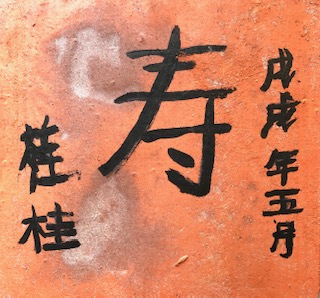 戊戌年五月
寿
桂桂